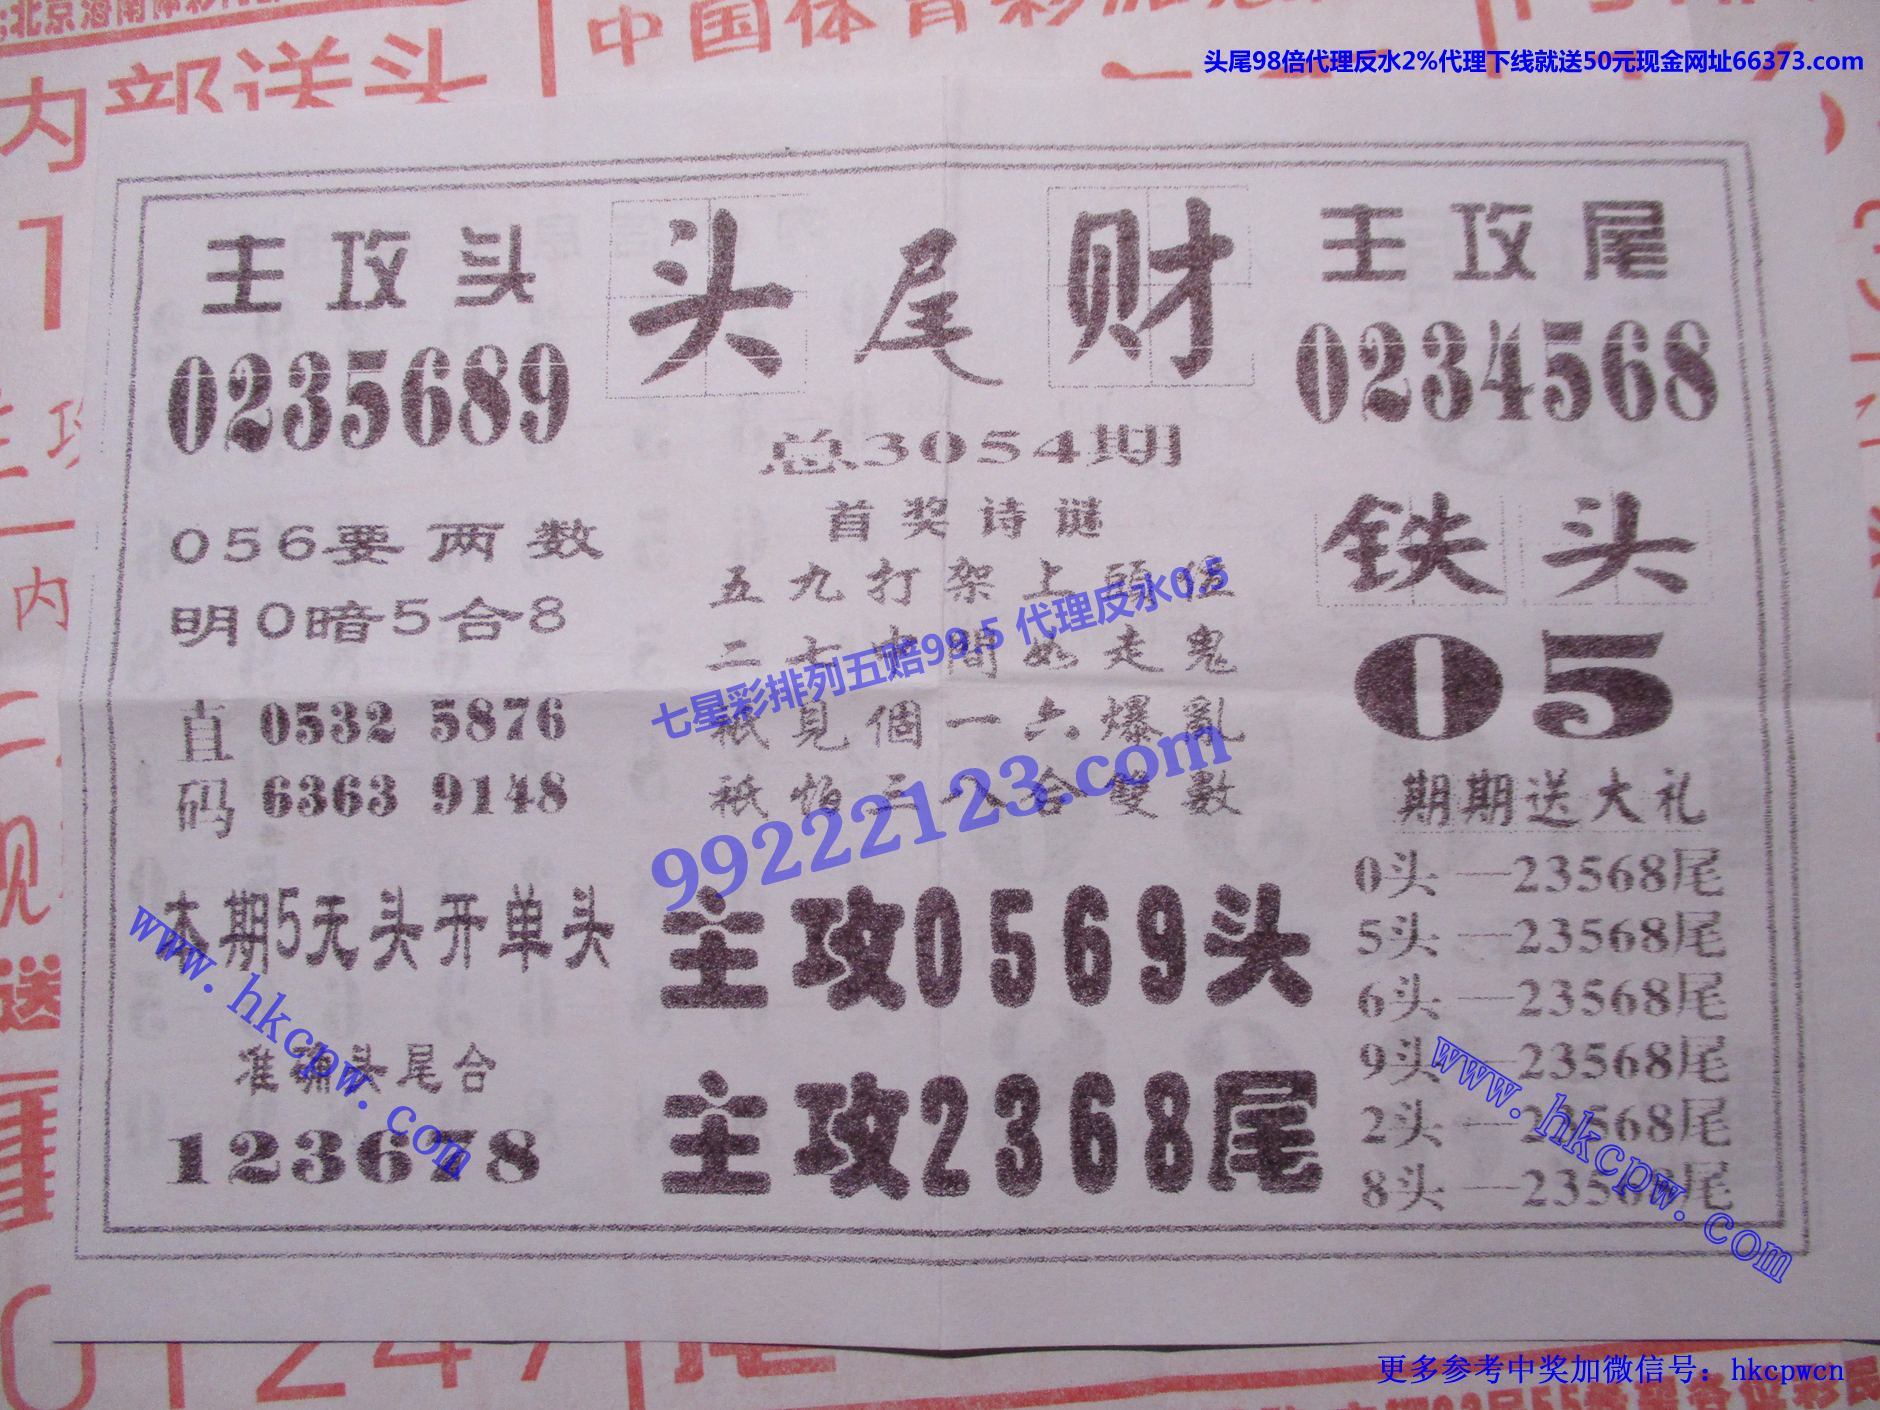 头尾98倍代理反水2%代理下线就送50元现金网址66373.com
内部送头
主攻头
头尾财
主攻尾
0235689
0234568
总3054期
首奖诗谜
五九打架上頭
二七中間 走鬼
祇見個一六爆亂
祇怕三八合雙數
七星彩排列五赔99.5 代理反水0.5
99222123.com
056要两数
明0暗5合8
直码
0532 5876
6363 9148
铁头
05
期期送大礼
0头—23568尾
5头—23568尾
6头—23568尾
9头—23568尾
2头—23568尾
8头—23568尾
本期5元头开单头
主攻0569头
准确头尾合
123678
主攻2368尾
www.hkcpw.com
www.hkcpw.com
更多参考中奖加微信号：hkcpwcn